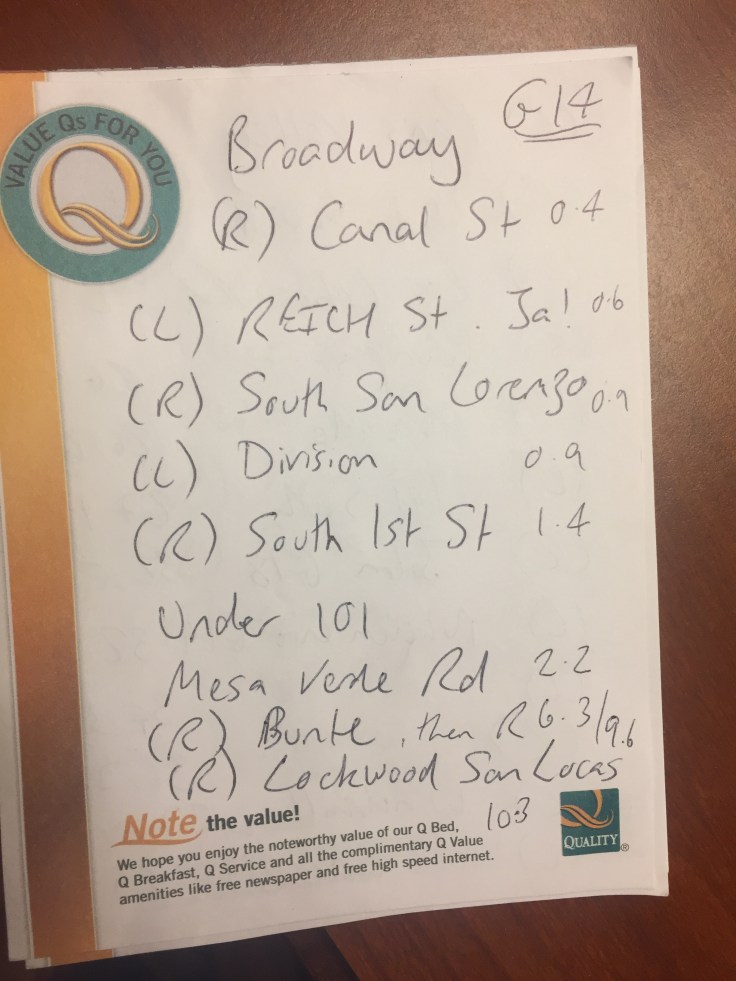 G14
VALUE Qs FOR YOU
Broadway
(R) Canal St 0.4
(L) REICH St. Ja! 0.6
(R) South San Lorenzo 0.9
(L) Division 0.9
(R) South 1st St 1.4
Under 101
Mesa Verde Rd 2.2
(R) Bunte, then R 6.3/9.6
(R) Lockwood San Lucas
10.3
Note the value!
We hope you enjoy the noteworthy value of our Q Bed,
Q Breakfast, Q Service and all the complimentary Q Value
amenities like free newspaper and free high speed internet.
QUALITY®